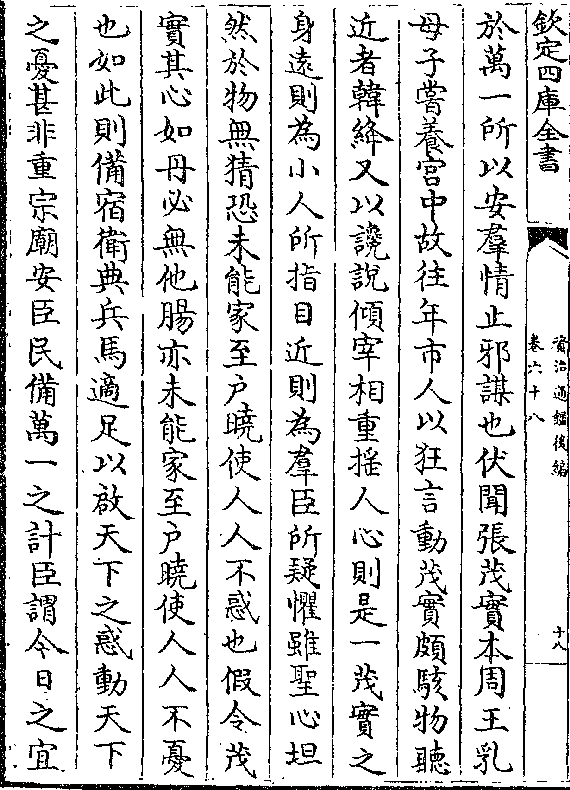 欽定四庫全書
資治通鑑後編
卷六十八
十八
於萬一所以安羣情止邪謀也伏聞張茂實本周王乳
母子嘗養宮中故往年市人以狂言動茂實頗駭物聽
近者韓絳又以讒說傾宰相重搖人心則是一茂實之
身遠則為小人所指目近則為羣臣所疑懼雖聖心坦
然於物無猜恐未能家至户曉使人人不惑也假令茂
實其心如丹必無他腸亦未能家至户曉使人人不憂
也如此則備宿衛典兵馬適足以啟天下之惑動天下
之憂甚非重宗廟安臣民備萬一之計臣謂今日之宜